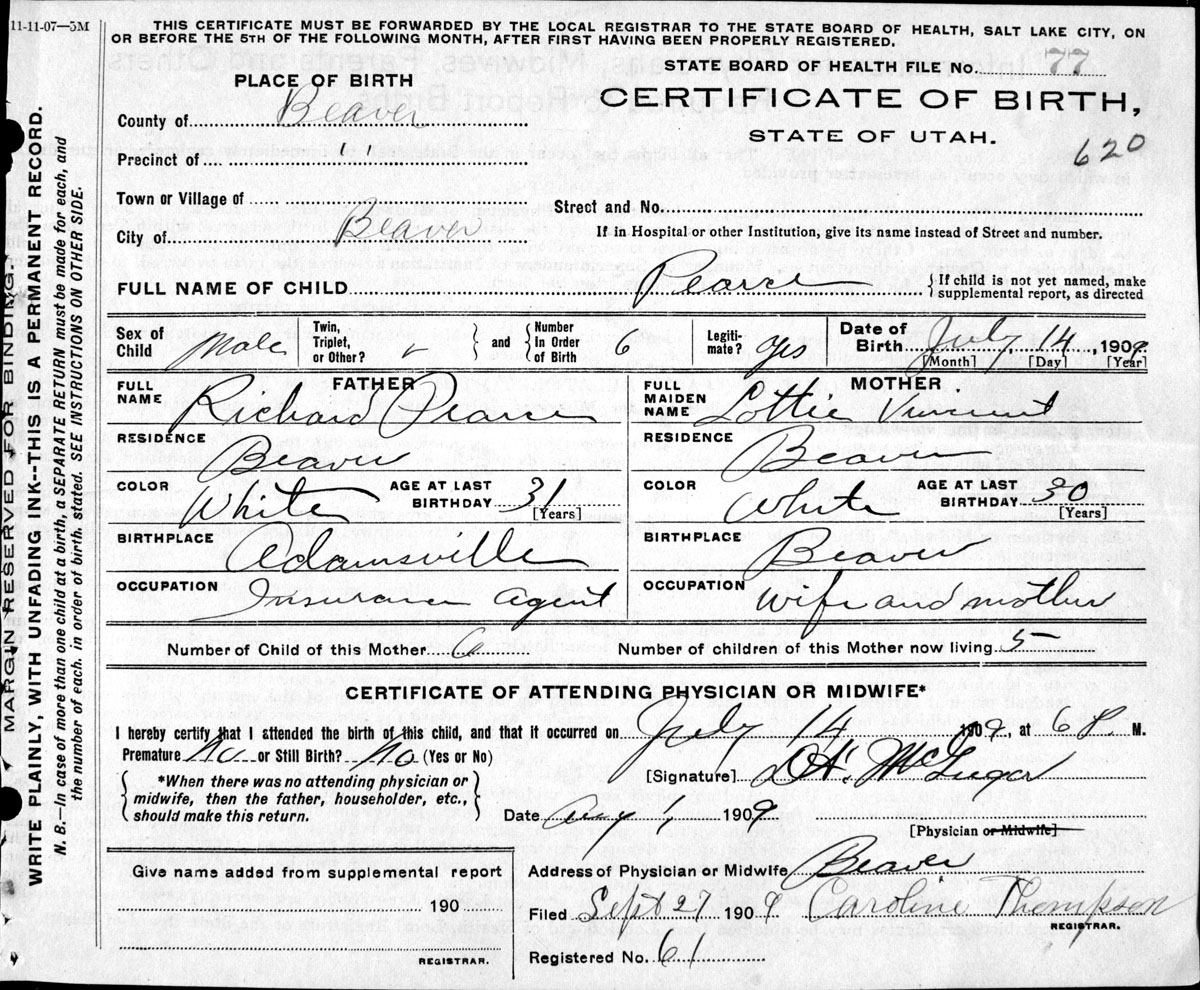 11-11-07—5M
THIS CERTIFICATE MUST BE FORWARDED BY THE LOCAL REGISTRAR TO THE STATE BOARD OF HEALTH, SALT LAKE CITY, ON
OR BEFORE THE 5TH OF THE FOLLOWING MONTH, AFTER FIRST HAVING BEEN PROPERLY REGISTERED.
STATE BOARD OF HEALTH FILE No. 77
PLACE OF BIRTH
CERTIFICATE OF BIRTH,
STATE OF UTAH.
620
County of Beaver
Precinct of " "
Town or Village of
Street and No.
City of Beaver
If in Hospital or other Institution, give its name instead of Street and number.
FULL NAME OF CHILD Pearce
If child is not yet named, make
supplemental report, as directed
Sex of Child Male Twin, Triplet, or Other? and Number In Order of Birth 6 Legitimate? yes Date of Birth July 14, 1909
[Month] [Day] [Year]
FATHER MOTHER
FULL NAME Richard Pearce FULL MAIDEN NAME Lottie Vincent
RESIDENCE Beaver RESIDENCE Beaver
COLOR White AGE AT LAST BIRTHDAY 31 [Years] COLOR White AGE AT LAST BIRTHDAY 30 [Years]
BIRTHPLACE Adamsville BIRTHPLACE Beaver
OCCUPATION Insurance agent OCCUPATION Wife and mother
Number of Child of this Mother 6 Number of children of this Mother now living 5
CERTIFICATE OF ATTENDING PHYSICIAN OR MIDWIFE*
I hereby certify that I attended the birth of this child, and that it occurred on July 14 1909, at 6 P. M.
Premature? No or Still Birth? No (Yes or No)
*When there was no attending physician or
midwife, then the father, householder, etc.,
should make this return.
[Signature]
Date Aug 1 1909
[Physician or Midwife]
Address of Physician or Midwife Beaver
Give name added from supplemental report
190
REGISTRAR.
Filed Sept 27 1909 Caroline Thompson
REGISTRAR.
Registered No. 61
MARGIN RESERVED FOR BINDING.
WRITE PLAINLY, WITH UNFADING INK--THIS IS A PERMANENT RECORD.
N. B.—In case of more than one child at a birth, a SEPARATE RETURN must be made for each, and
the number of each, in order of birth, stated. SEE INSTRUCTIONS ON OTHER SIDE.